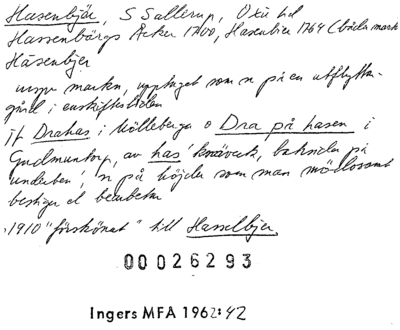 Hasenbjär, S Sallerup, Oxie hd
Hassenbärgs Åcker 1700, Hasenbier 1764 (båda mark
Häsenbjer
urspr marken, upptaget som n på en utflytta-
gård i enskiftestiden
jf Drahas i Mölleberga o Dra på hasen i
Gudmuntorp, av has 'knäveck, baksida på
underben', n på höjder som man mödosamt
bestiger el bearbetar
1910 "förskönat" till Hasselbjer.
00026293
Ingers MFA 1962:42